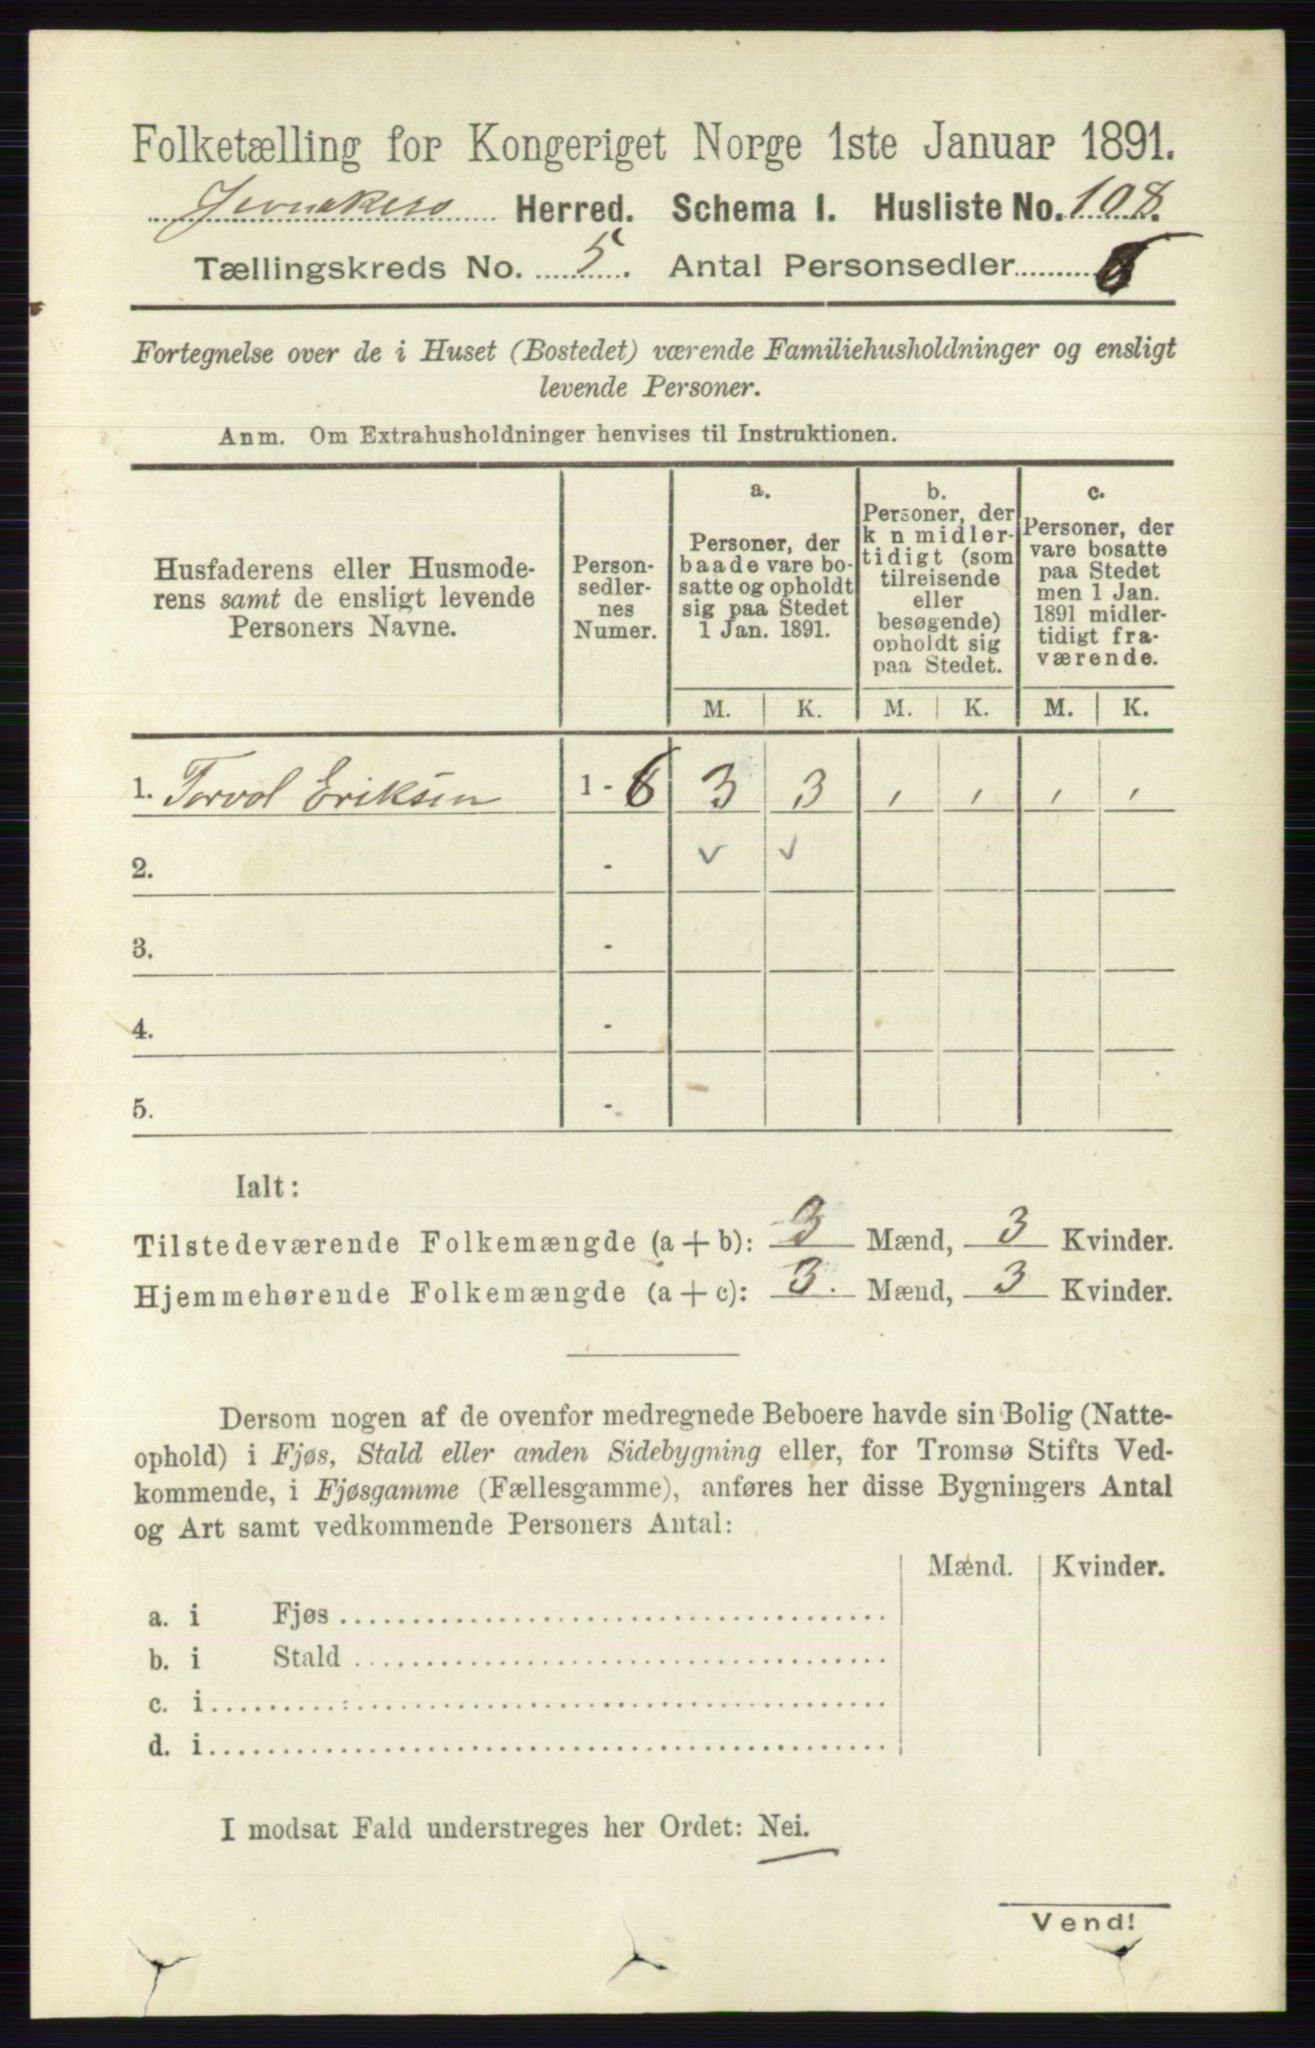 Folketælling for Kongeriget Norge 1ste Januar 1891.
Jevnakers Herred. Schema I. Husliste No. 108.
Tællingskreds No. 5. Antal Personsedler 6
Fortegnelse over de i Huset (Bostedet) værende Familiehusholdninger og ensligt
levende Personer.
Anm. Om Extrahusholdninger henvises til Instruktionen.
Husfaderens eller Husmode-
rens samt de ensligt levende
Personers Navne.
Person-
sedler-
nes
Numer.
a.
Personer, der
baade vare bo-
satte og opholdt
sig paa Stedet
1 Jan. 1891.
b.
Personer, der
k n midler-
tidigt (som
tilreisende
eller
besøgende)
opholdt sig
paa Stedet.
c.
Personer, der
vare bosatte
paa Stedet
men 1 Jan.
1891 midler-
tidigt fra-
værende.
M. K. M. K. M. K.
1. Torval Eriksen 1 - 6 3 3 , , , ,
2. - ✓ ✓
3. -
4. -
5. -
Ialt:
Tilstedeværende Folkemængde (a + b): 3 Mænd, 3 Kvinder.
Hjemmehørende Folkemængde (a + c): 3. Mænd, 3 Kvinder.
Dersom nogen af de ovenfor medregnede Beboere havde sin Bolig (Natte-
ophold) i Fjøs, Stald eller anden Sidebygning eller, for Tromsø Stifts Ved-
kommende, i Fjøsgamme (Fællesgamme), anføres her disse Bygningers Antal
og Art samt vedkommende Personers Antal:
Mænd. Kvinder.
a. i Fjøs
b. i Stald
c. i
d. i
I modsat Fald understreges her Ordet: Nei.
Vend!